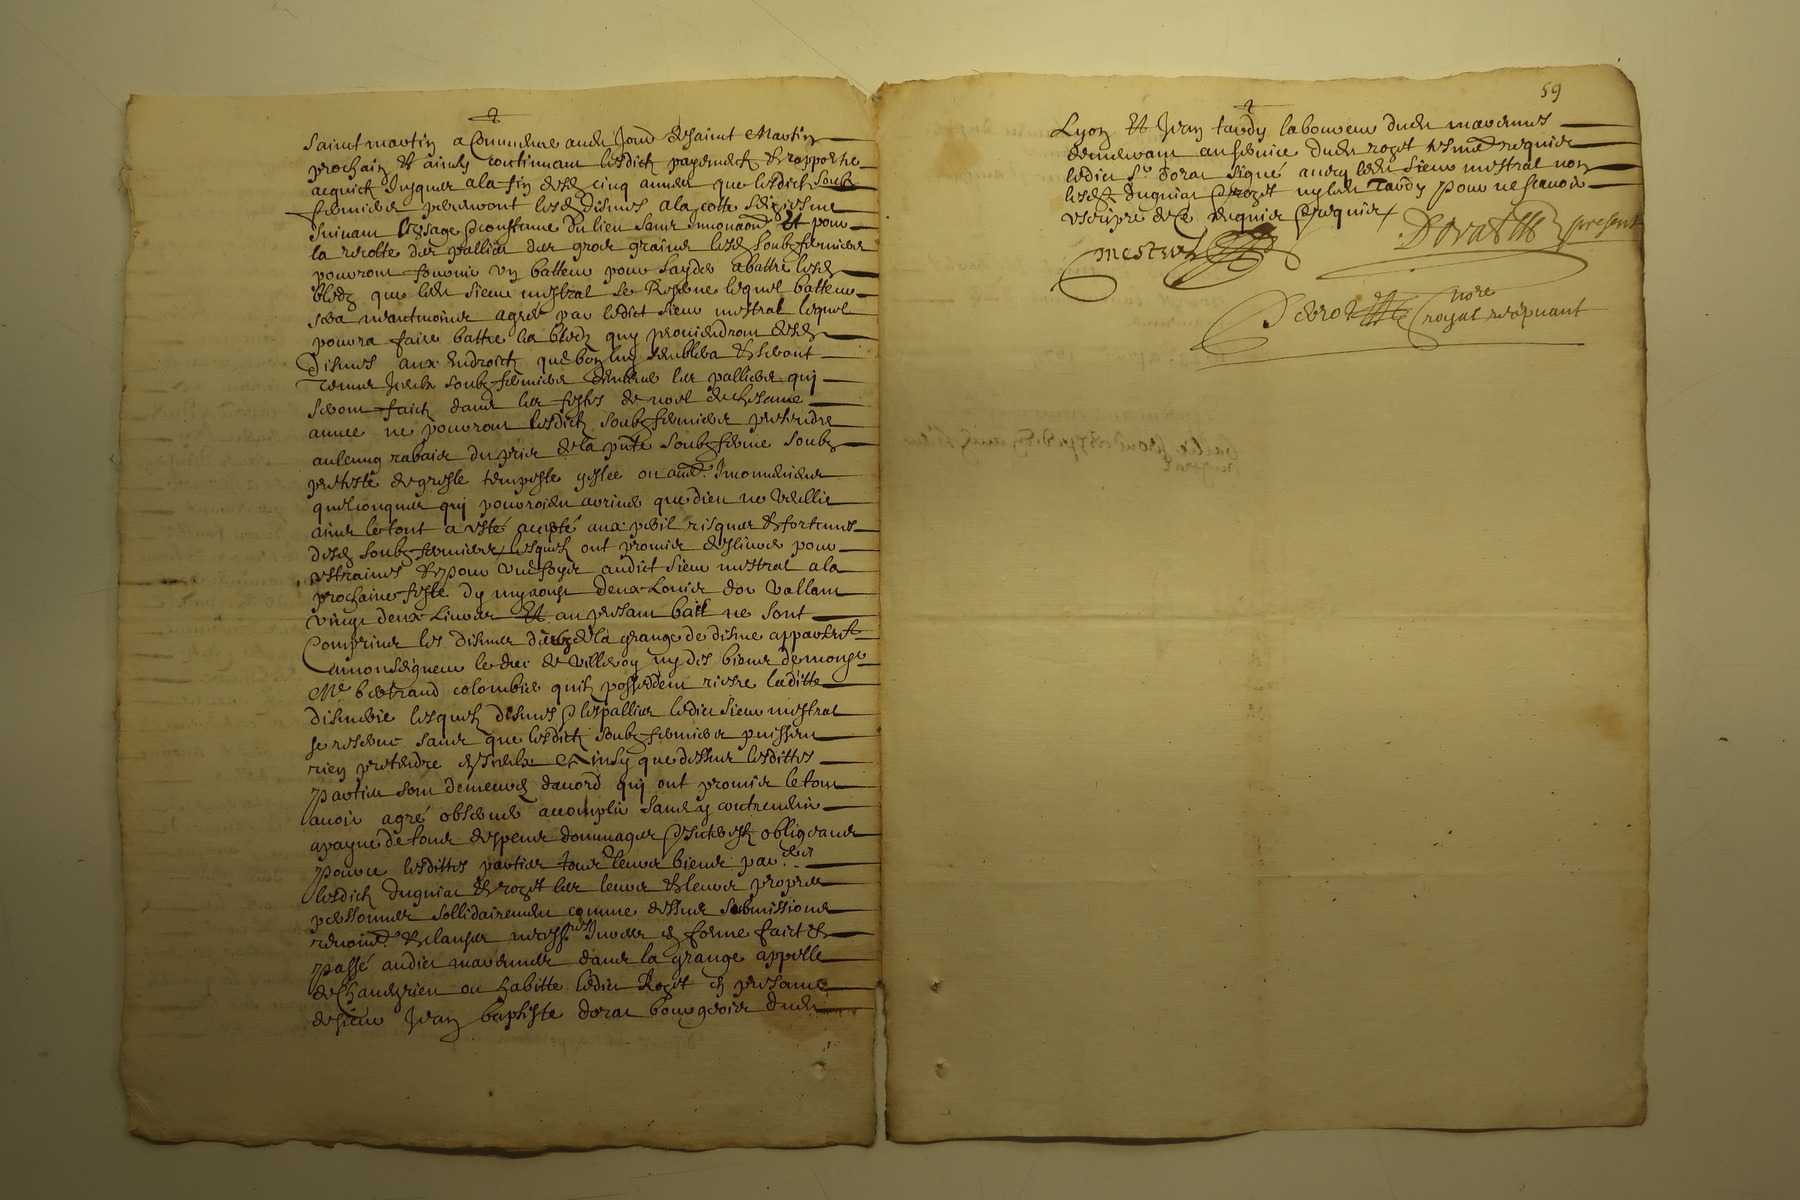 Saint martin a Commencer audit Jour de saint Martin
prochain et ainsy continuant lesdictz payementz et rapporter
acquict Jusques a la fin desd cinq annees que lesdictz soubz
fermiers percevront lesd dismes a la cotte
suivant l'usage & coustume du lieu sans Innovaon Et pour
la recolte des pallies des gros grains lesd soubz fermiers
pourront fournir un batteur pour layder a battre lesd
bledz que ledit sieur mestral se Reserve lequel batteur
sera neantmoings agréé par ledict sieur mestral lequel
pourra faire battre les bledz quy proviendront desd
Dismes aux Endroictz que bon luy semblera et seront
Tenus Iceux soubz fermiers les pallies qui
seront faictz dans les festes de noel de chesune
annee ne pourront lesdictz soubz fermiers pretendre
aulcung rabais du prix de la pnte soubz ferme soubz
pretexte de gresle tempeste gellee ou aue Inconveniens
quelconques qui pourroient arriver que dieu ne veillie
ains le tout a esté accepté aux peril risques et fortunes
desd soubz fermiers lesquelz ont promis deslivrer pour
estraines et pour une foys audict sieur mestral a la
prochaine feste dy myaoust deux Louis dor vallant
vingt deux Livres Et au present bail ne sont
Comprins les dismes de la grange de disme appartent
a monseigneur le duc de villeroy ny des biens de monsr
Me bertrand colombier quilz possedent riere laditte
dismerie lesquelz dismes & les pallies ledict sieur mestral
se reserve sans que lesdictz soubz fermiers puissent
rien pretendre Ainsy que dessus lesdittes
parties sont demeures dacord qui ont promis le tout
avoir agré observer accomplir sans y contrevenir
a payne de tous despens dommages & interestz obligeant
pource lesdittes parties tous leurs biens par
lesdictz duguiat et roget les leurs et leurs propres
personnes sollidairement comme dessus submissions
renoincs et clauses necessres Incerees en forme faict et
passé audict marennes dans la grange appellé
de Chandyrieu ou habitte ledict Roget en presance
de sieur Jean baptiste dorat bourgeois dudit
59
Lyon Et Jean tardy laboureur dudit marennes
demeurant au service dudit roget tesmoings requis
ledict Sr dorat signé avecq ledit sieur mestral non
lesd duguiat & roget ny led Tardy pour ne scavoir
escripre de ce enquis & requis
mestral
Dorat present
nore
royal recepvant